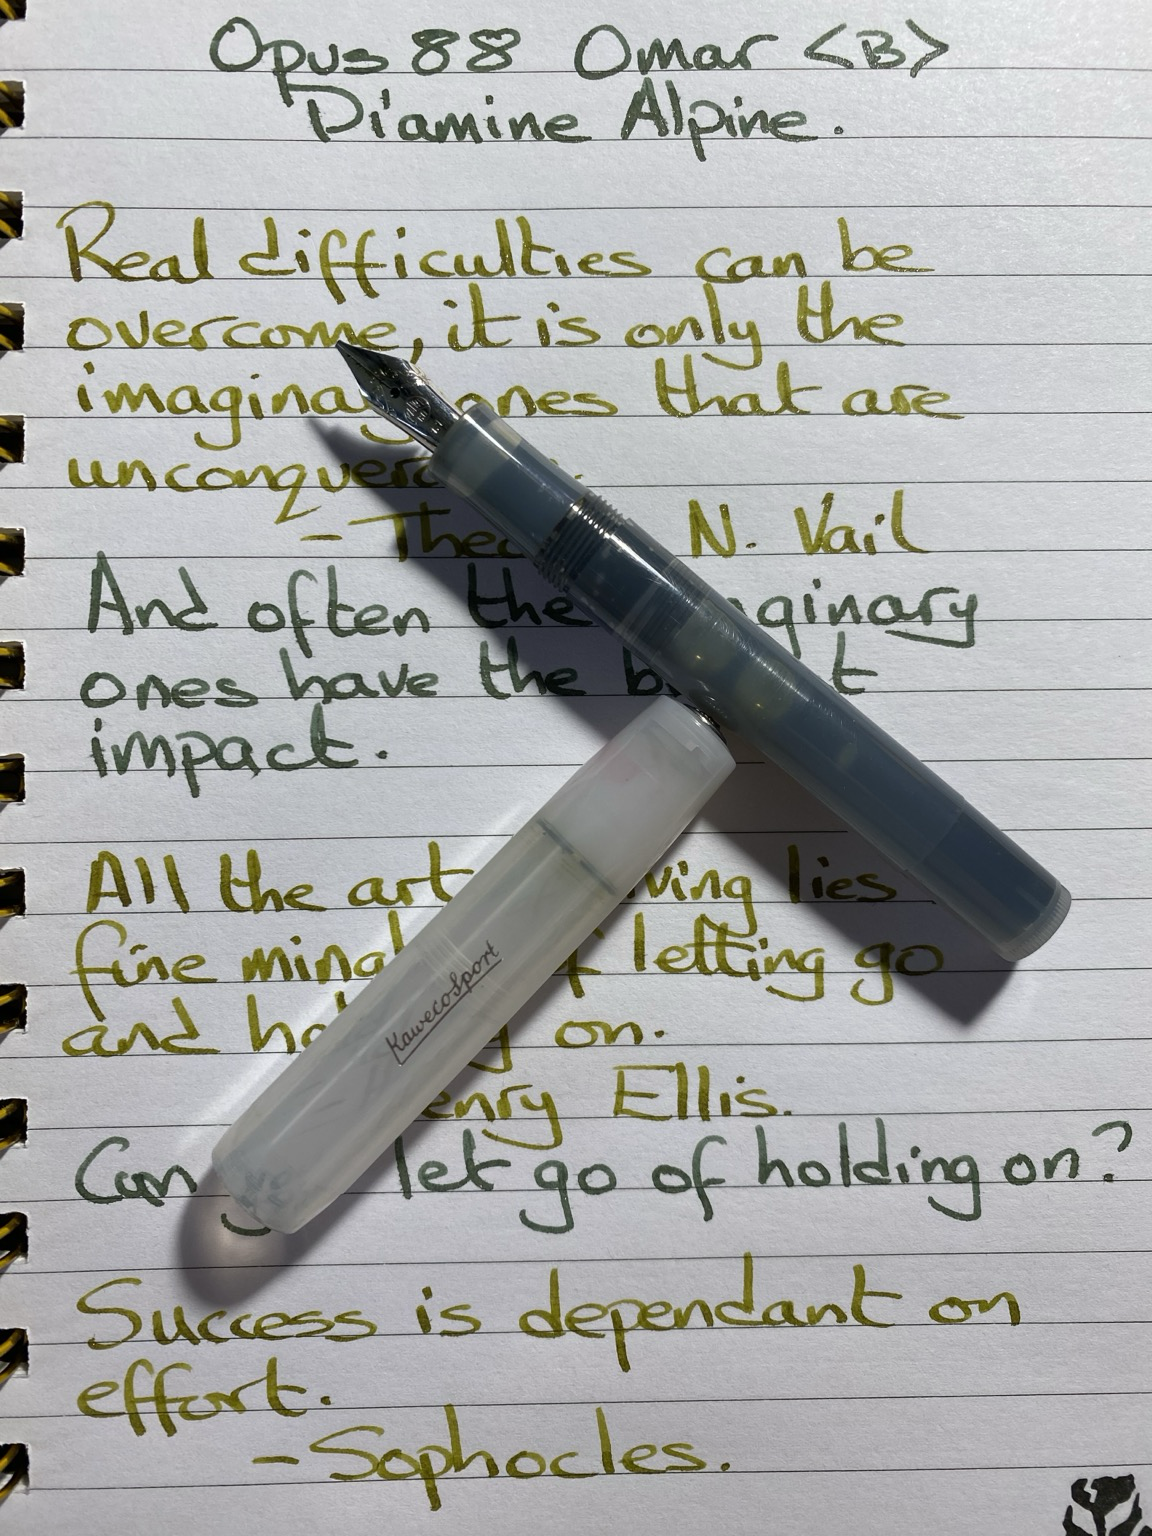 Opus 88 Omar <B>
Diamine Alpine.
Real difficulties can be
overcome, it is only the
imagina ones that are
unconquer
- Theo N. Vail
And often the ginary
ones have the b t
impact.
All the art ving lies
fine mingl f letting go
and ho g on.
enry Ellis.
Can let go of holding on?
Success is dependant on
effort.
- Sophocles.
KawecoSport